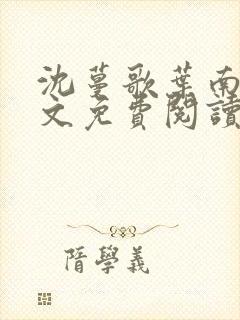 沈蔓歌葉南
文免費閱讀
隋學義